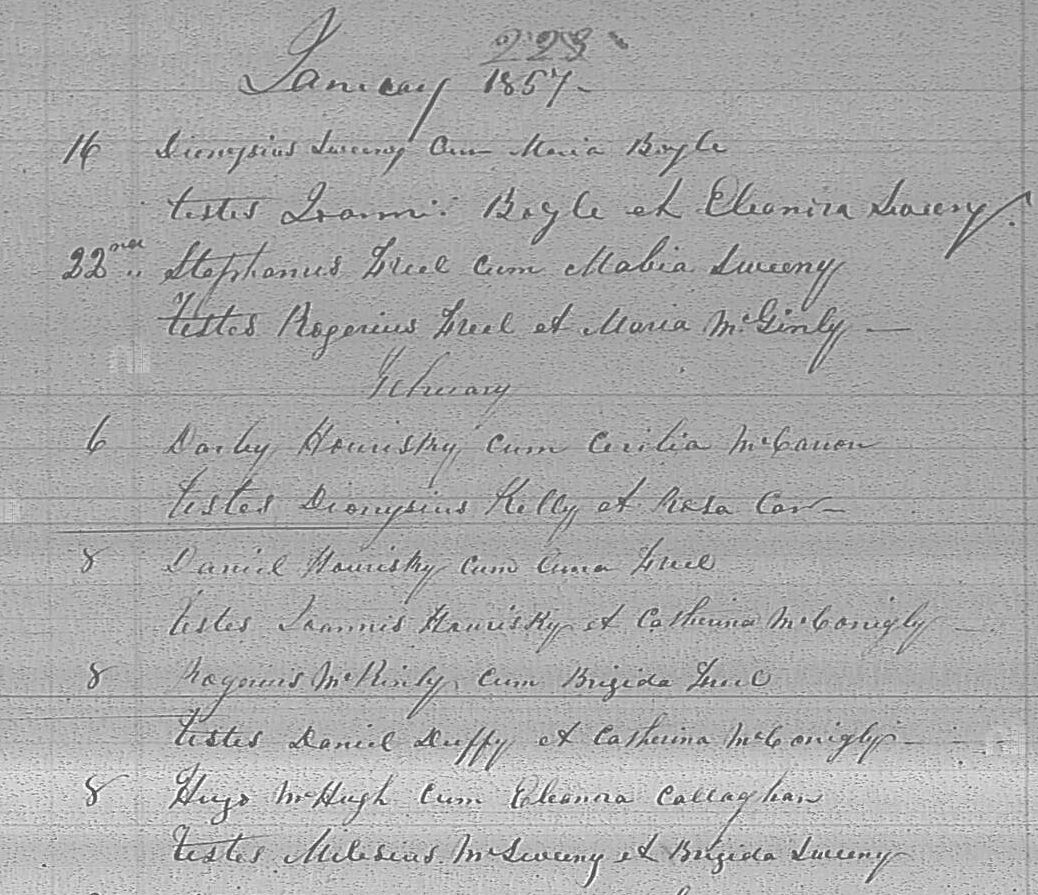 223
January 1857
16 Dionysius Sweeny Cum Maria Boyle
testes Joannis Boyle et Eleanora Sweeny
22nd Stephanus Freel Cum Mabia Sweeny
testes Rogerius Freel et Maria McGinly
February
6 Darby Hourisky cum Cecilia McCarron
testes Dionysius Kelly et Rosa Carr
8 Daniel Hourisky cum Anna Freel
testes Joannis Hourisky et Catherina McConigly
8 Rogerius McKinly Cum Brigida Freel
testes Daniel Duffy et Catherina McConigly
8 Hugo McHugh Cum Eleanora Callaghan
testes Milesius McSweeny et Brigida Sweeny